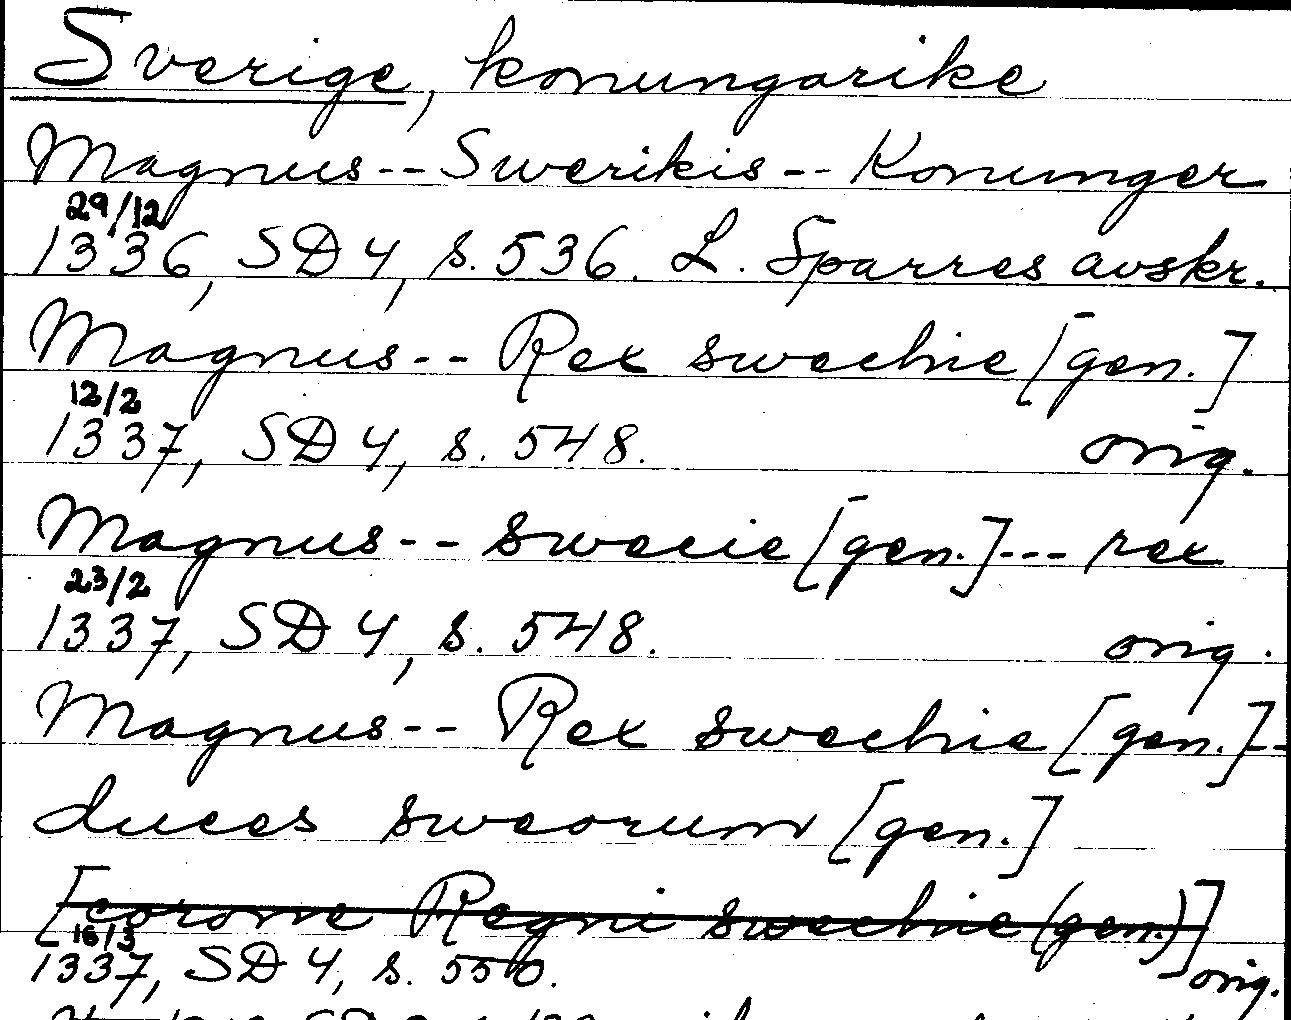 Sverige, konungarike
Magnus -- Swerikis -- Konunger
29/12
1336, SD 4, s. 536. L. Sparres avskr.
Magnus -- Rex swechie [gen.]
12/2
1337, SD 4, s. 548. orig.
Magnus -- swecie [gen.] --- rex
23/2
1337, SD 4, s. 548. orig.
Magnus -- Rex swechie [gen.] --
duces sweorum [gen.]
[corone Regni swechie (gen.)]
16/3
1337, SD 4, s. 550. orig.